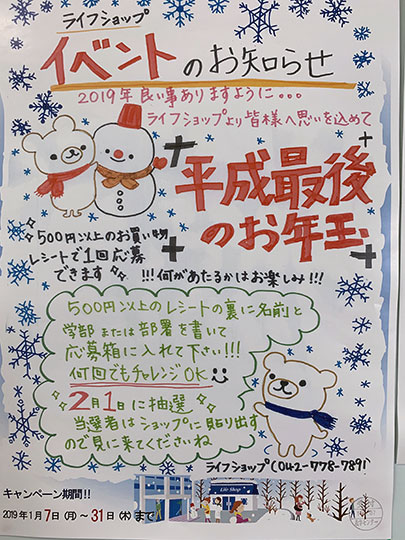 ライフショップ
イベントのお知らせ
2019年良い事ありますように。。。
ライフショップより皆様へ思いを込めて
平成最後
のお年玉
500円以上のお買い物
レシートで1回応募
できます
!!!何があたるかはお楽しみ!!!
500円以上のレシートの裏に名前と
学部または部署を書いて
応募箱に入れて下さい!!!
何回でもチャレンジOK
2月1日に抽選
当選者はショップに貼り出す
ので見に来てくださいね
ライフショップ(042-778-7891)
キャンペーン期間!!
2019年1月7日(月)~31日(木)まで
Life Shop